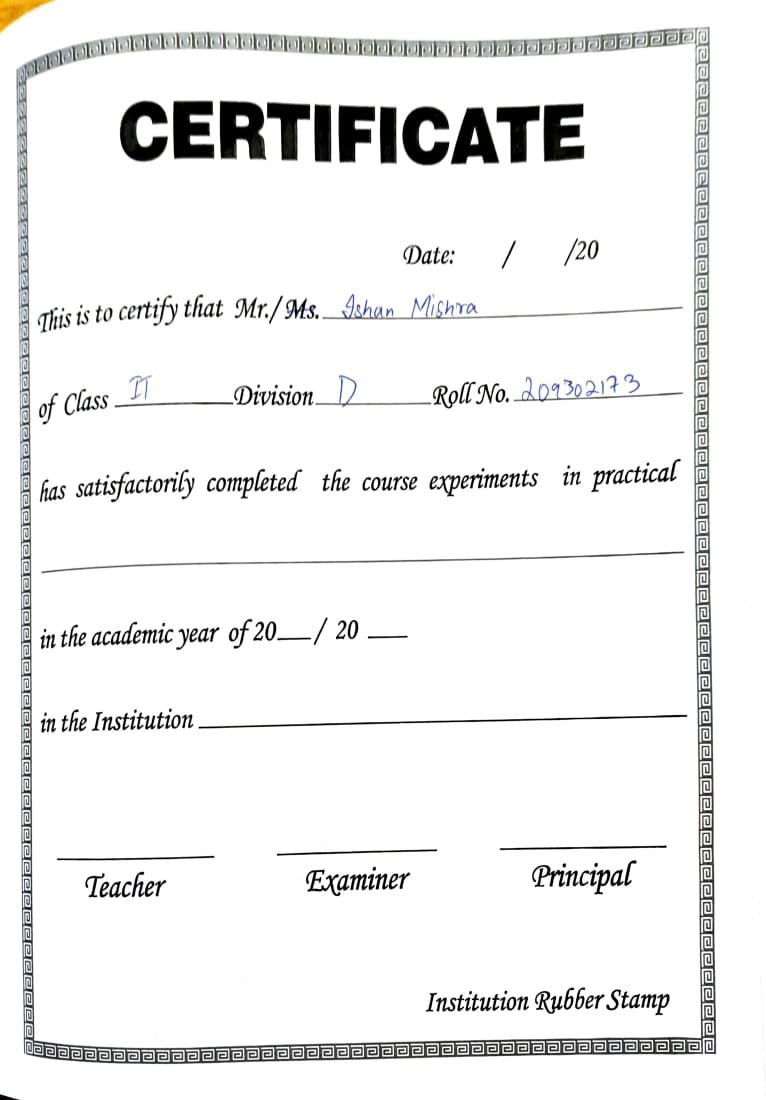 CERTIFICATE
Date: / /20
This is to certify that Mr./Ms. Ishan Mishra
of Class IT Division D Roll No. 209302173
has satisfactorily completed the course experiments in practical
in the academic year of 20__/ 20 __
in the Institution
Teacher Examiner Principal
Institution Rubber Stamp